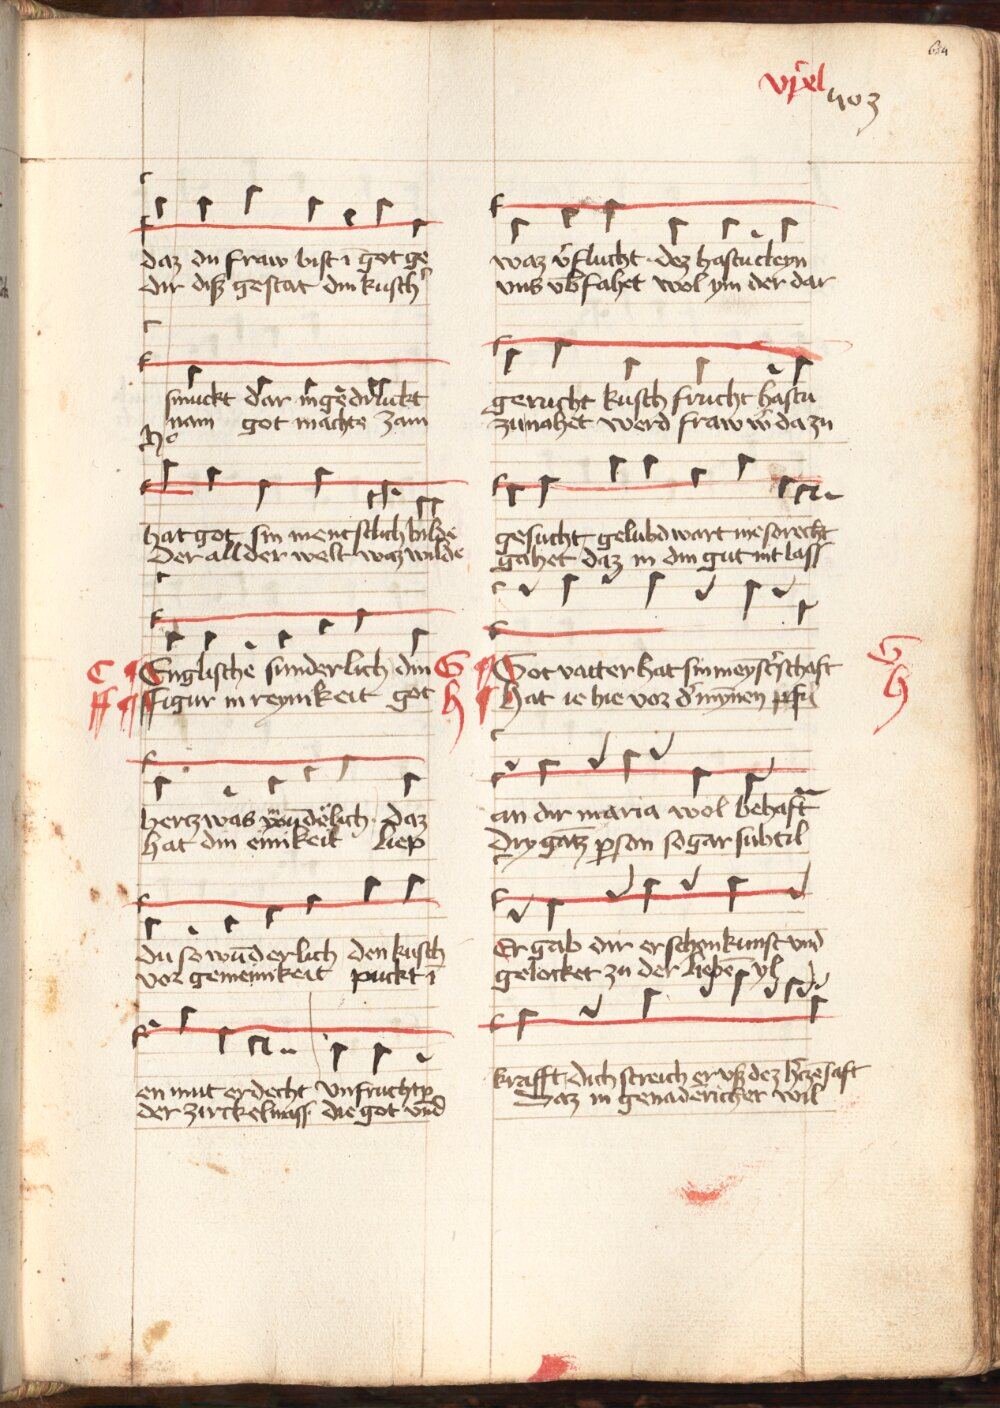 634
vr̄el 403
daz du fraw bist ī got ge
dir diß gestat din kusch
smuckt dar in gedruckt
nam got machte zam
hat got sin menstlich bilde
Der all der welt waz wilde
C ¶ Englische sunderlich din
ff ¶ ffigur in reynikeit got
hertz was delich. daz
hat din einikeit liep
du so wūderlich den kusch
vor gemeinikeit puckt ī
en mut erdecht Vnfrucht
der zirckelmass die got vnd
waz v̄flucht. dez hastu cleyn
vns vb̄fahet wol ym der dar
gerucht kusch frucht hastu
zu nahet werd fraw da zu
gesucht gelubd wart nie so recht
gahet daz in din gut nit lass
G ¶ Got vatter hat sin meyst̄schaft G
h ¶ Hat ie hie vor d̄ mȳnen pfil h
an dir maria wol behaft
Dry gātz ꝑson so gar subtil
Er gab dir er schon kunst vnd
gelocket zu der liebē yl
krafft. dich streich er vß dez h̄czē saft
Daz in genadericher wil